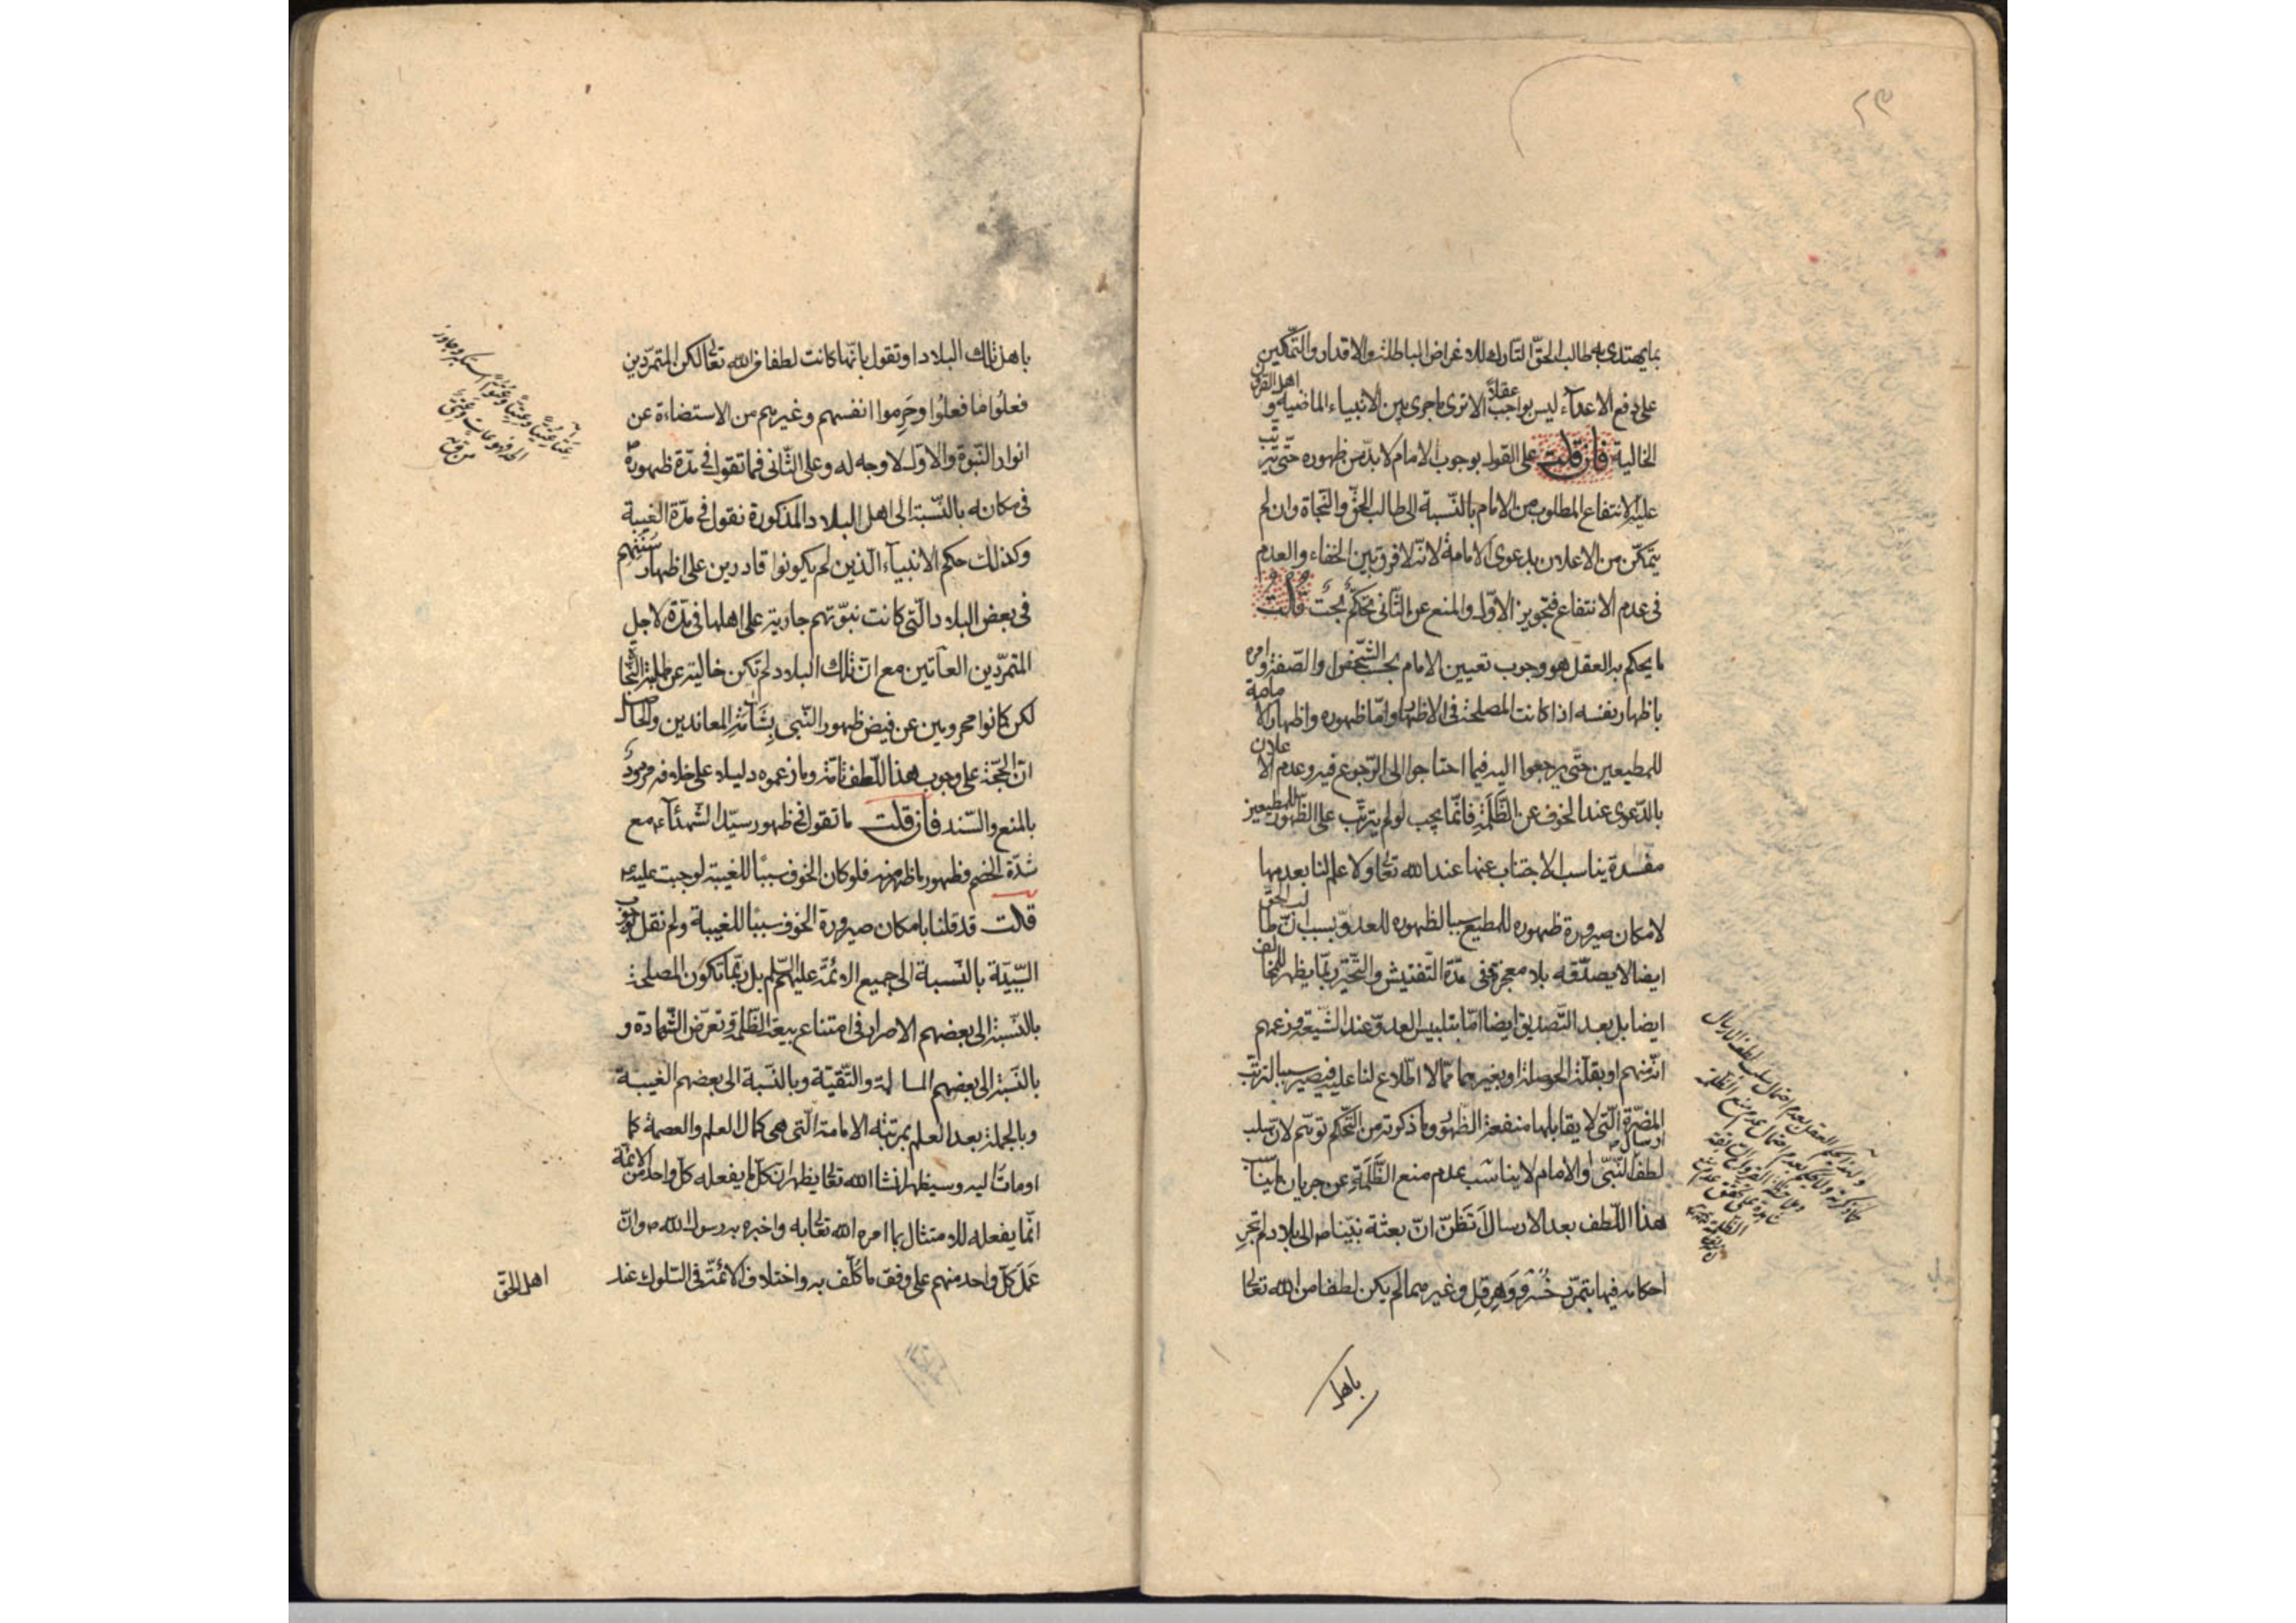 ٢٣
بما يهتدى به طالب الحقّ التارك للاغراض الباطلة والاقدار والتّمكين
على دفع الاعدآء ليس بواجب عقلاً الا ترى ما جرى بين الانبياء الماضية و اهل القرون
الخالية فان قلت على القول بوجوب الامام لا بدّ من ظهوره حتّى يترتّب
عليه الانتفاع المطلوب من الامام بالنّسبة الى طالب الحقّ والنّجاة وان لم
يتمكّن من الاعلان بدعوى الامامة لانّه لا فرق بين الخفاء والعدم
فى عدم الانتفاع فتجويز الاوّل والمنع عن الثّانى تحكّم بحت قلت
ما يحكم به العقل هو وجوب تعيين الامام بحسب الشّخص والصّفة و امره
باظهار نفسه اذا كانت المصلحة فى الاظهار وامّا ظهوره واظهار الامامة
للمطيعين حتّى يرجعوا اليه فيما احتاجوا الى الرّجوع فيه وعدم الاعلان
بالدّعوى عند الخوف عن الظَّلَمَةِ فانّما يجب لو لم يترتّب على الظّهور للمطيعين
مفسدة يناسب الاجتناب عنها عند الله تعالى ولا علم لنا بعدمها
لامكان صيرورة ظهوره للمطيع سببا لظهوره للعدوّ بسبب انّ طالب الحقّ
ايضا لا يصدّقه بلا معجزة ففى مدّة التّفتيش والتّحيّر ربّما يظهر للمخالف
ايضا بل بعد التّصديق ايضا امّا بتلبيس العدوّ عند الشّيعة وزعمهم
انّه منهم او بقلّة الحوصلة او بغيرهما ممّا لا اطّلاع لنا عليه فيصير سببا لترتّب
المضرّة الّتى لا يقابلها منفعة الظّهور وما ذكرته من التّحكّم توهّم لانّ سلب
لطف ارسال النّبىّ او الامام لا يناسب بعدم منع الظَّلَمَةِ عن جريان ما يناسب
هذا اللّطف بعد الارسال أتَظُنّ انّ بعثة نبيّنا ص الى بلاد لم تجرِ
احكامه فيها بتمرّد خُسْرو وَهِرَقِل وغيرهما لم يكن لطفا من الله تعالى
باهل
باهل تلك البلاد او تقول بانّها كانت لطفا من الله تعالى لكن المتمرّدين
فعلُوا ما فعلُوا وحَرِموا انفسهم وغيرهم من الاستضاءة عن
انوار النّبوّة والاوّل لا وجه له وعلى الثّانى فما تقول فى مدّة ظهوره ص
فى مكانه بالنّسبة الى اهل البلاد المذكورة نقول فى مدّة الغيبة
وكذلك حكم الانبيآء الّذين لم يكونوا قادرين على اظهار سُنَنِهِم
فى بعض البلاد الّتى كانت نبوّتهم جارية على اهلها فى مدّة لاجل
المتمرّدين العآتين مع انّ تلك البلاد لم تكن خالية عن طلبة النّجاة
لكن كانوا محرومين عن فيض ظهور النّبى بِشَآمَةِ المعاندين والحاصل
انّ الحجّة على وجوب هذا اللّطف تامّة وما زعموه دليلا على خلافه مردودٌ
بالمنع والسّند فان قلت ما تقول فى ظهور سيّد الشّهدآء ع مع
شدّة الخصم وظهور ما ظهر منه فلو كان الخوف سببًا للغيبة لوجبت عليه ع
قلت قد قلنا بامكان صيرورة الخوف سببًا للغيبة ولم نقل بوجوب
السّببيّة بالنّسبة الى جميع الائمّة عليهم السّلم بل ربّما تكون المصلحة
بالنّسبة الى بعضهم الاصرار فى امتناع بيعة الظّلمة وتعرّض الشّهادة و
بالنّسبة الى بعضهم المسالمة والتّقيّة وبالنّسبة الى بعضهم الغيبة
وبالجملة بعد العلم بمرتبة الامامة الّتى هى كمال العلم والعصمة كما
اومأت اليه وسيظهر انشا الله تعالى يظهر انّ كلّ ما يفعله كلّ واحد من الائمّة
انّما يفعله للامتثال بما امره الله تعالى به واخبره به رسول الله ص وانّ
عَمَل كلّ واحد منهم على وفق ما كلّف به واختلاف الائمّة فى السّلوك عند
اهل الحقّ